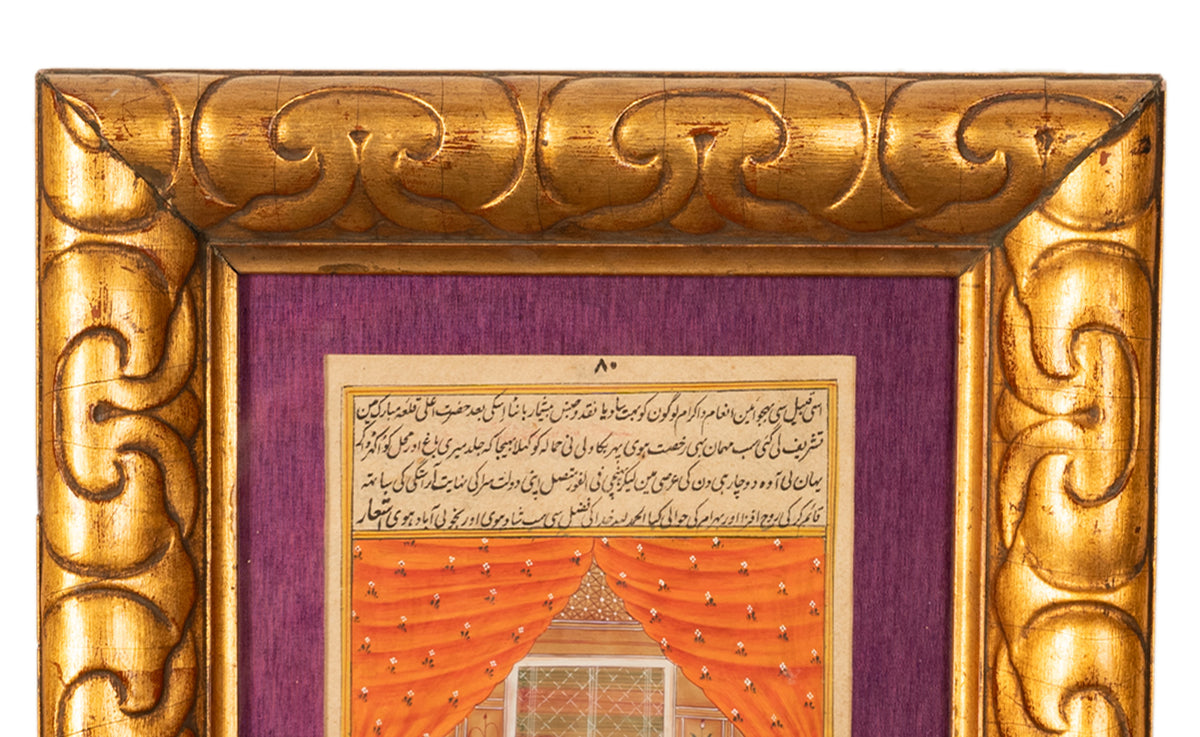 ۸۰
اسی قبیل سی بھجوا مین انعام و اکرام لوگون کو بہت سا دیا نقد و جنس بیشمار بانٹا اسکی بعد حضرت اعلی قلعہ مبارک مین
تشریف لی گئی سب مہمان بہی رخصت ہوی پہر بکاولی نی حمالہ کو کہلا بہیجا کہ جلد میری باغ اور محل کو
یہان لی آوہ دو چار ہی دن کی عرصی مین لیکر پہنچی نی الفور متصل اپنی دولت سرا کی نہایت آراستگی کی ساتہہ
قائم کر کی روح افزا اور بہرام کی حوالی کیا الحمد للہ خدا کی فضل سی سب شاد ہوی اور بخوبی آباد ہوی اشعار